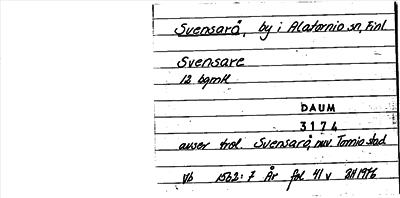 Svensarö, by i Alatornio sn, Finl
Svensare
12 bqmK
DAUM
3174
avser trol. Svensarö, nuv. Tornio stad
Vb 1562:7 År fol 41 v BH 1976